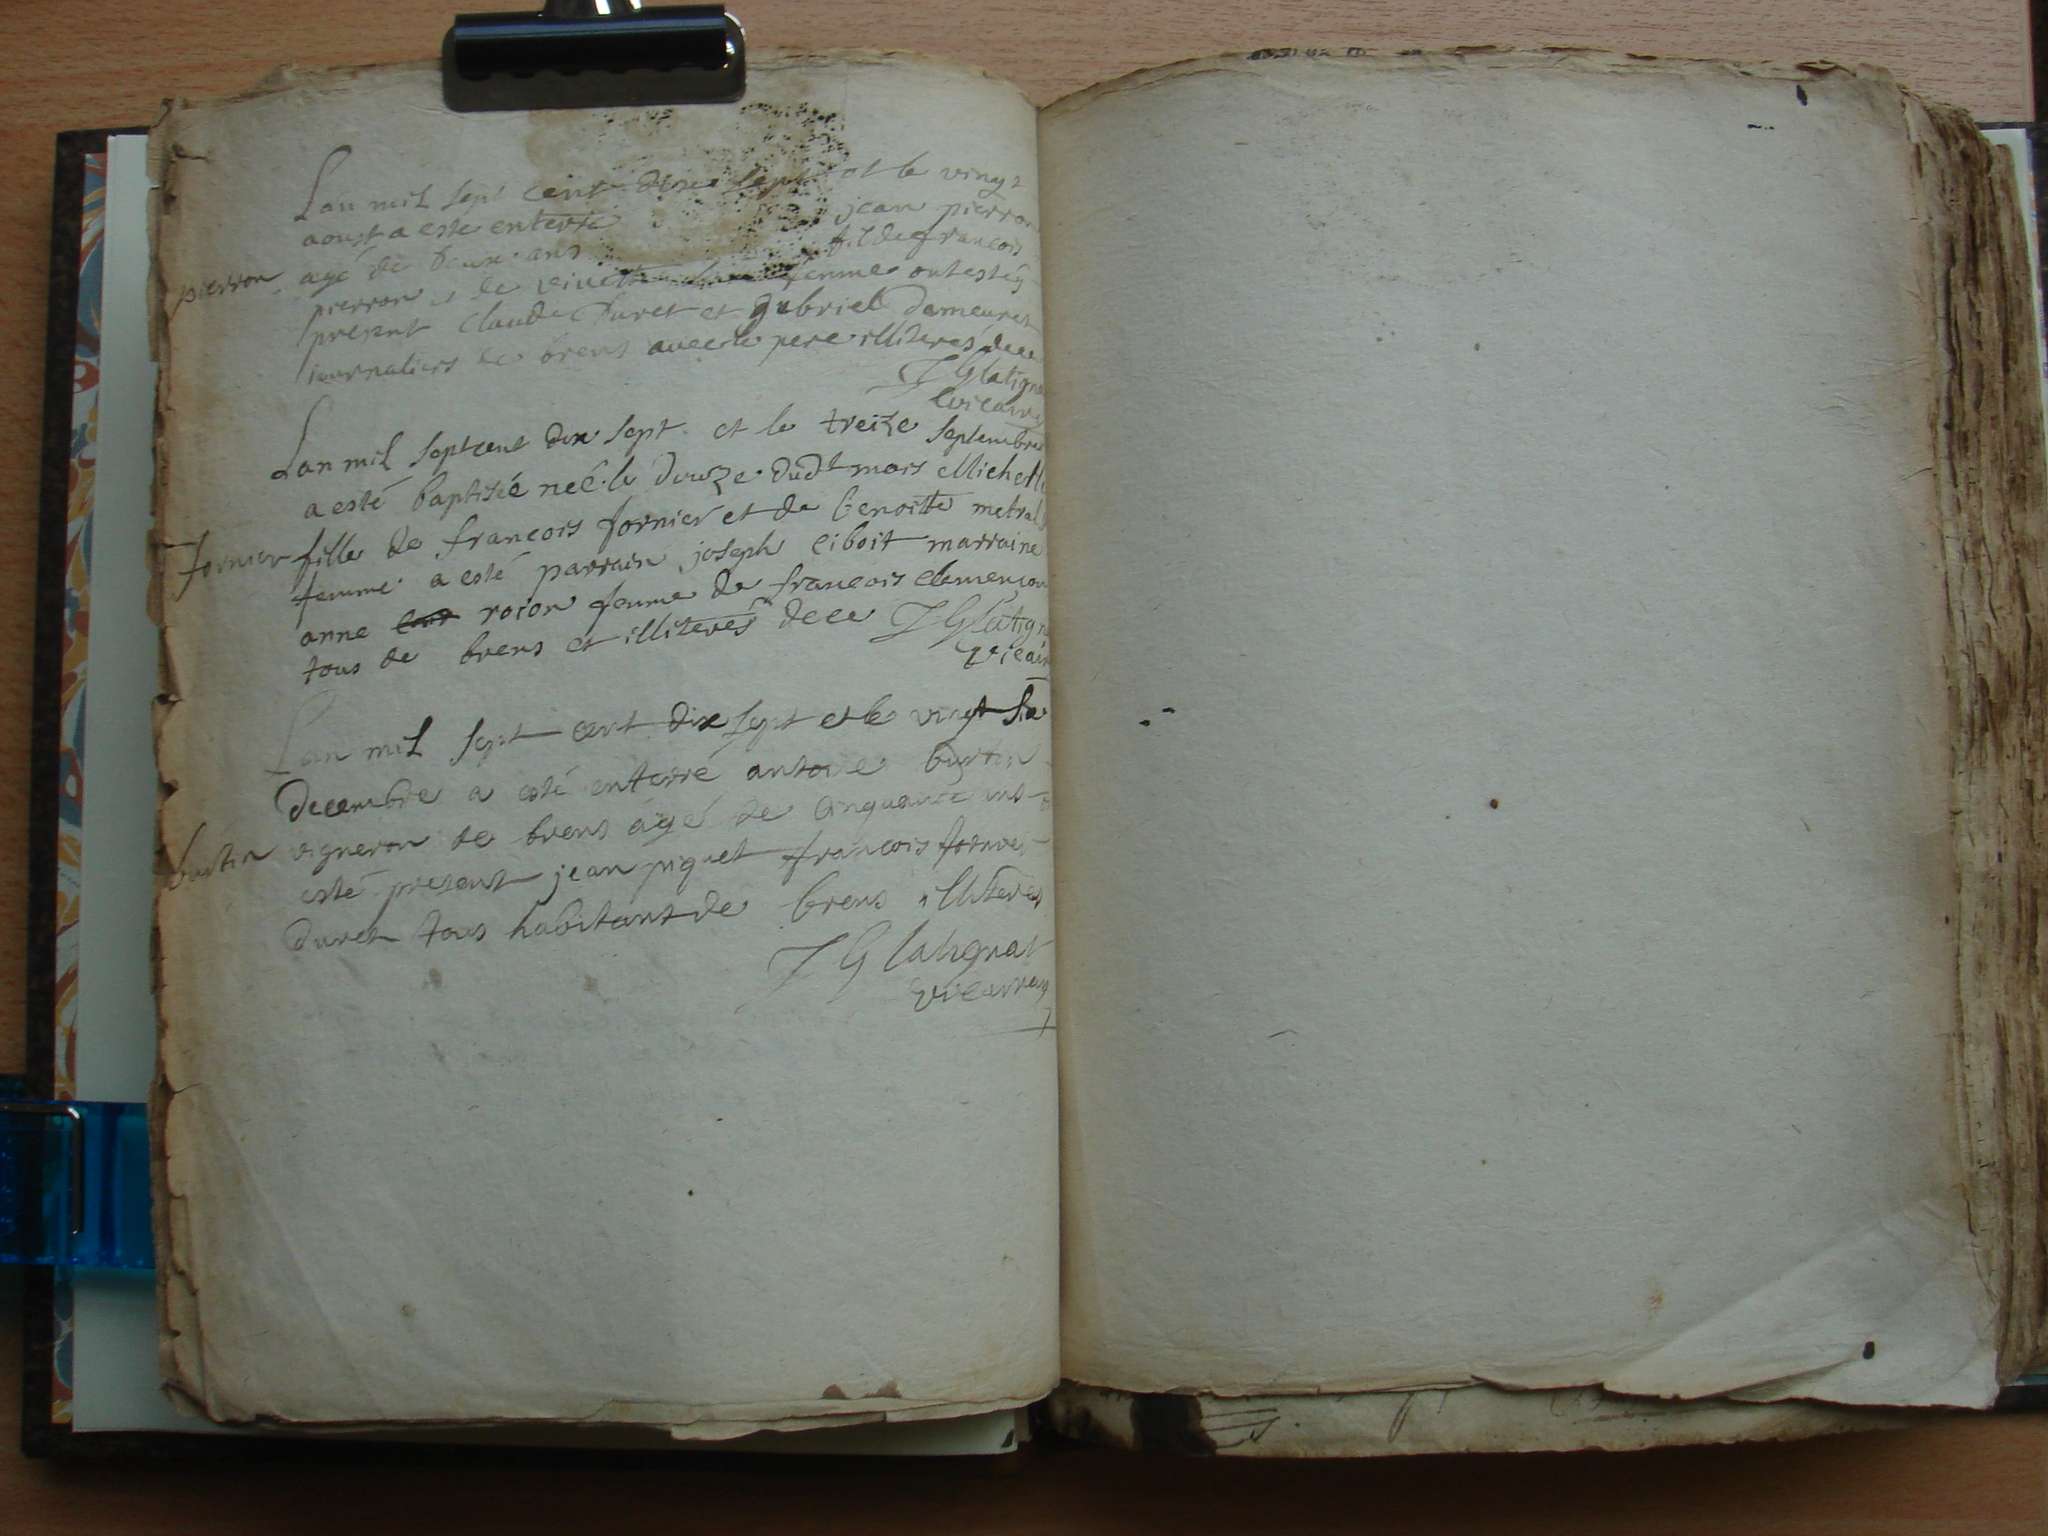 Lan mil sept cent dix sept et le vingt
aoust a esté enterré jean pierron
pierron agé de deux ans fil de francois
pierron et de femme ont esté
present claude Duret et gabriel Demeuret
journaliers de brens avec le pere illiteres dece
J Glatigna
vicaire
Lan mil sept cent dix sept et le treize septembre
a esté baptisée neé le douze dudt mois Michelle
fornier fille de francois fornier et de benoitte metral
femme a esté parrain joseph ciboit marraine
anne roion femme de francois clemençon
tous de brens et illiteres dece J Glatigna
vicaire
Lan mil sept cent dix sept et le vingt six
decembre a esté enterré antoine burtin
burtin vigneron de brens âgé de cinquante ans
esté present jean piquet francois fornier
duret tous habitant de brens illiteres
J Glatignat
vicaire